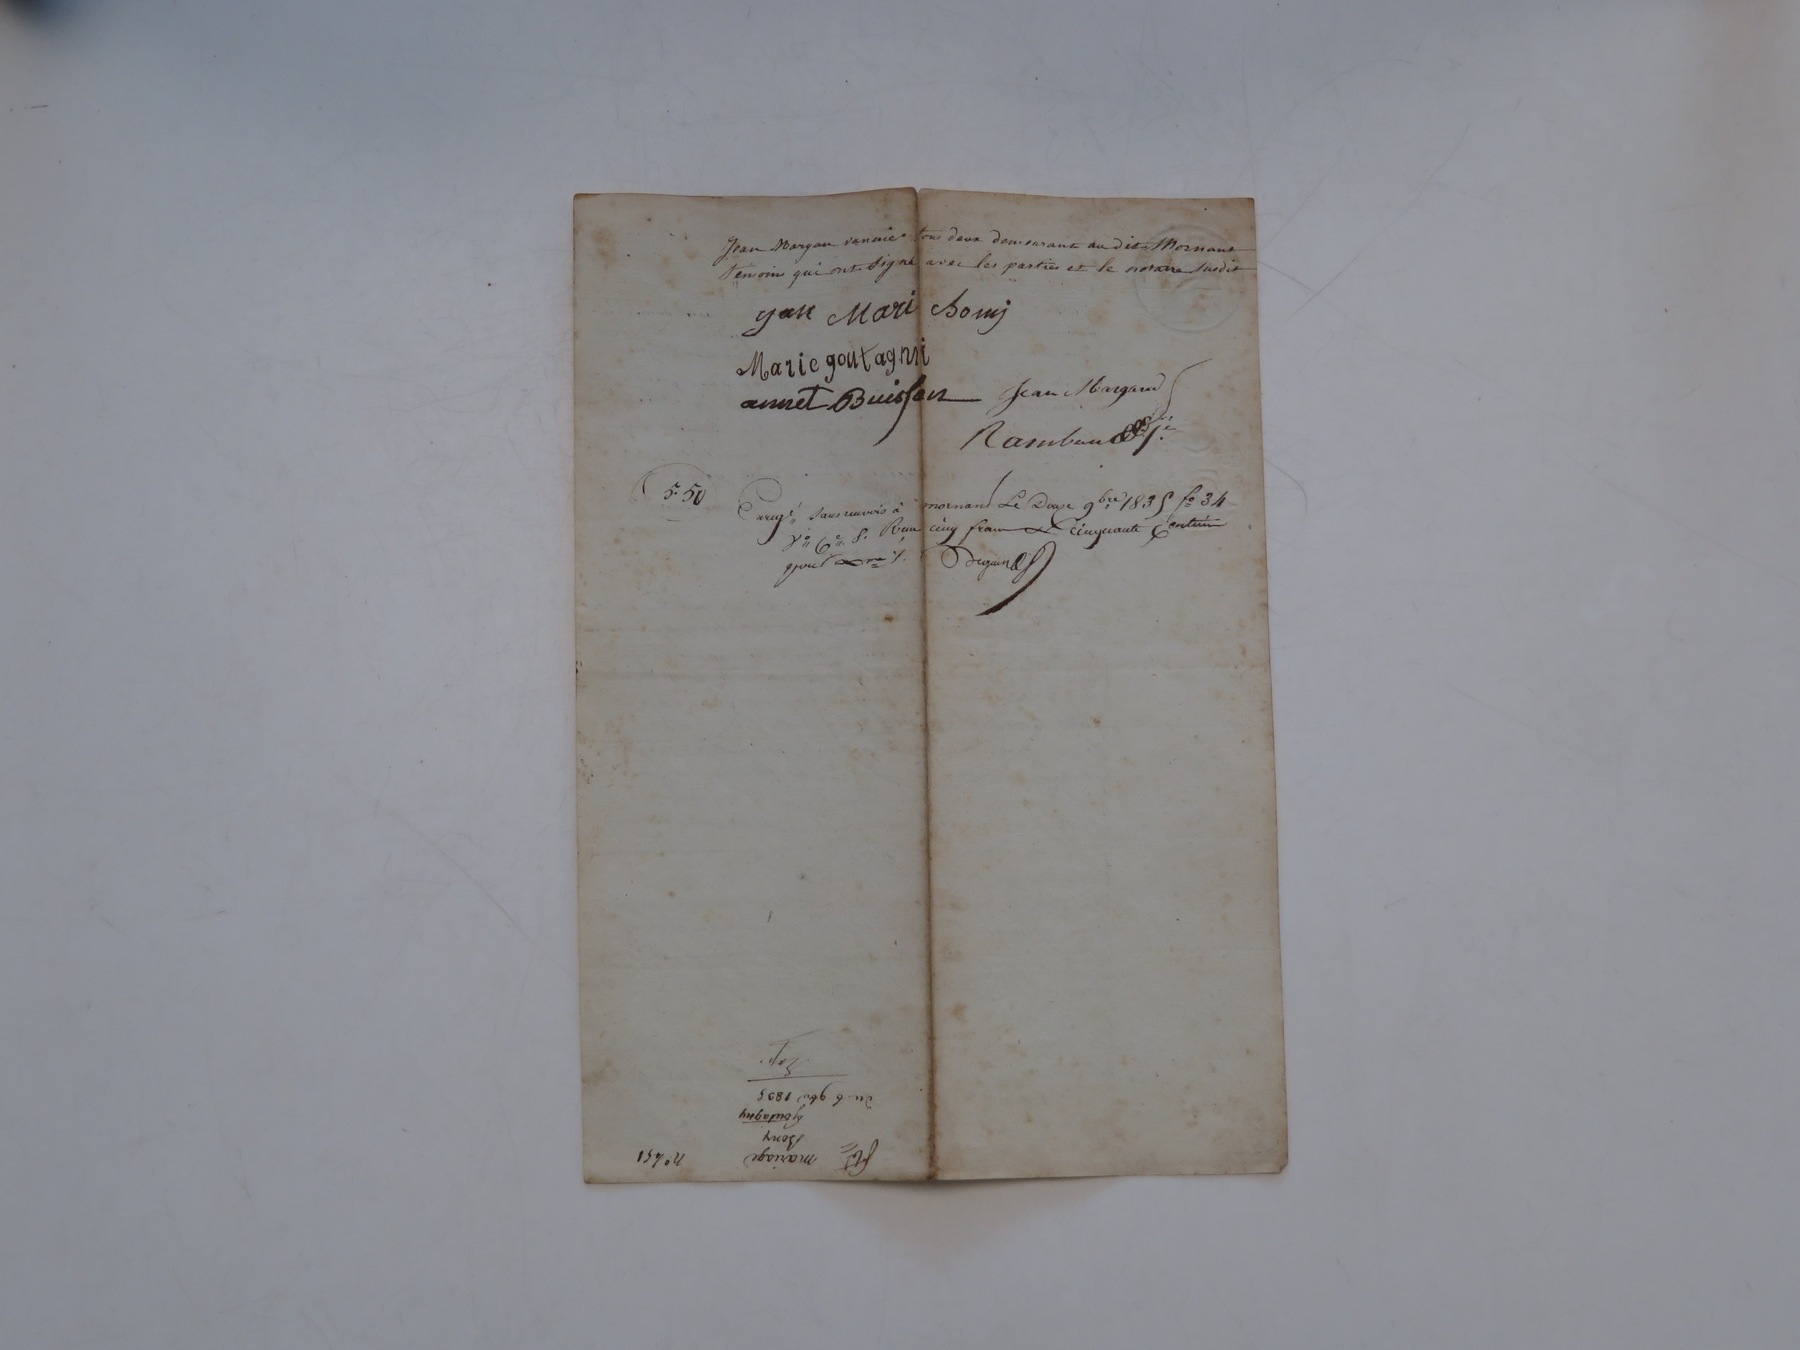 Jean Margau vanier tous deux demeurant au dit Mornant
témoins qui ont signé avec les parties et le notaire susdit
jean Mari Bonij
Marie goutagni
annet Buisson Jean Margaud
Rambaud
5·50
Enregé sans renvois à mornant Le Douze 9bre 1835 fo 34
Vo Ce 8. Reçu cinq francs cinquante Centimes
pour
no 451
mariage
Bony
Goutagny
du 6 9bre 1835